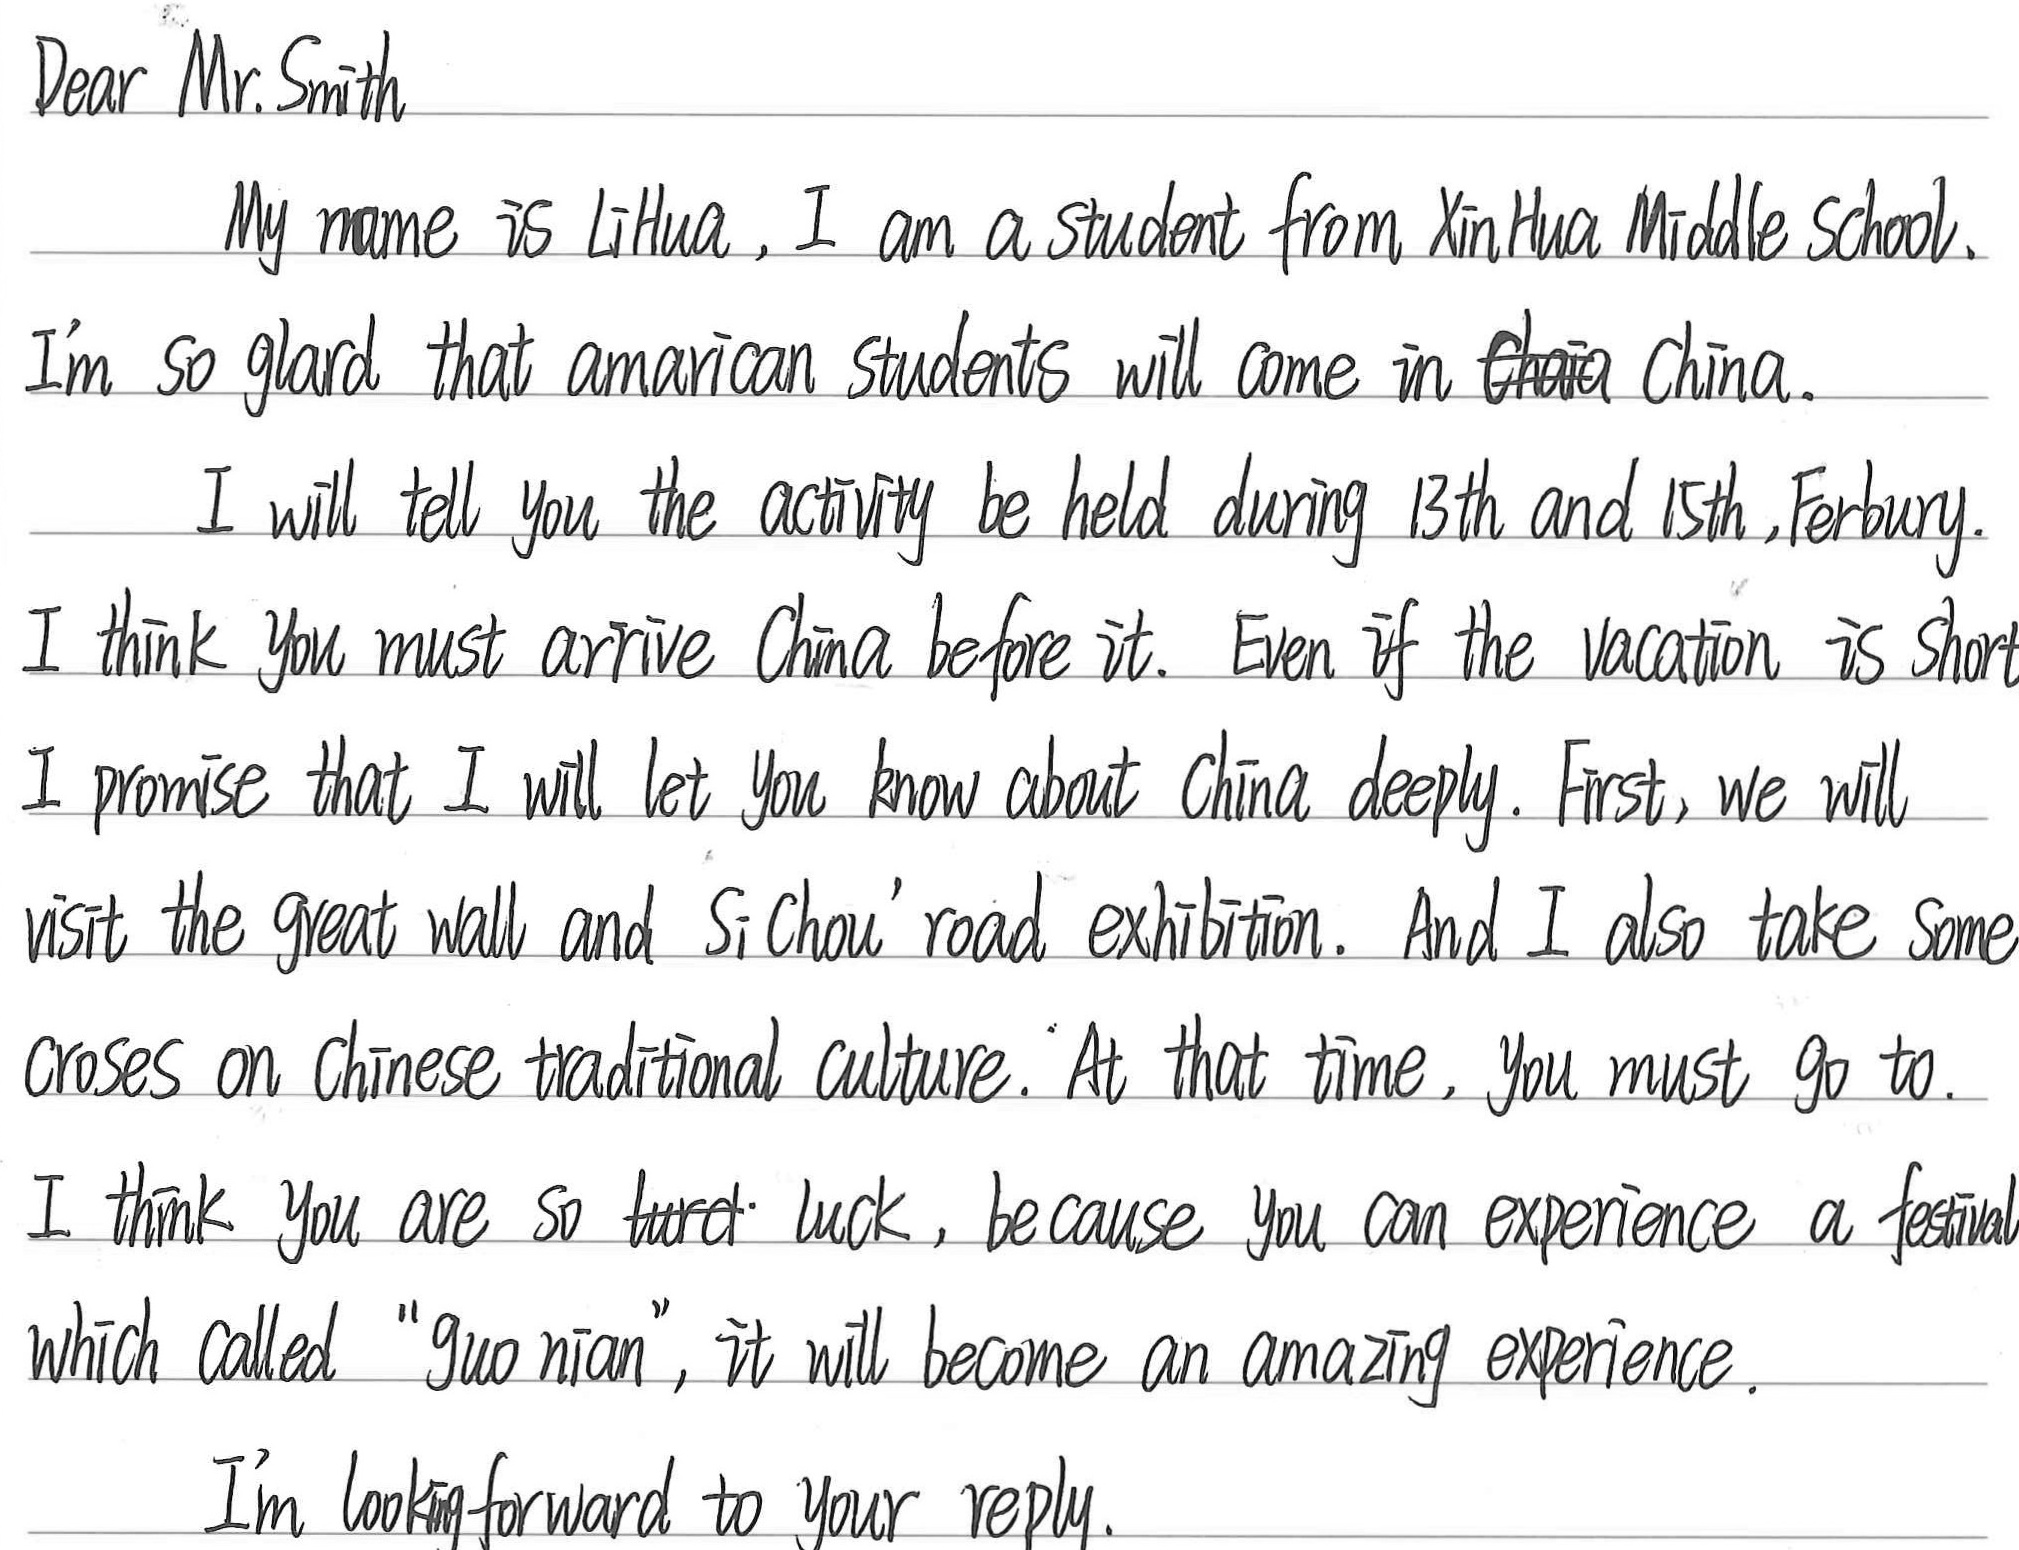 Dear Mr. Smith
My name is LiHua, I am a student from XinHua Middle School.
I'm so glard that amarican students will come in China.
I will tell you the activity be held during 13th and 15th, Ferbury.
I think you must arrive China before it. Even if the vacation is short
I promise that I will let you know about China deeply. First, we will
visit the great wall and Si Chou' road exhibition. And I also take some
croses on Chinese traditional culture. At that time, you must go to.
I think you are so luck, because you can experience a festival
which called "guo nian", it will become an amazing experience.
I'm looking forward to your reply.